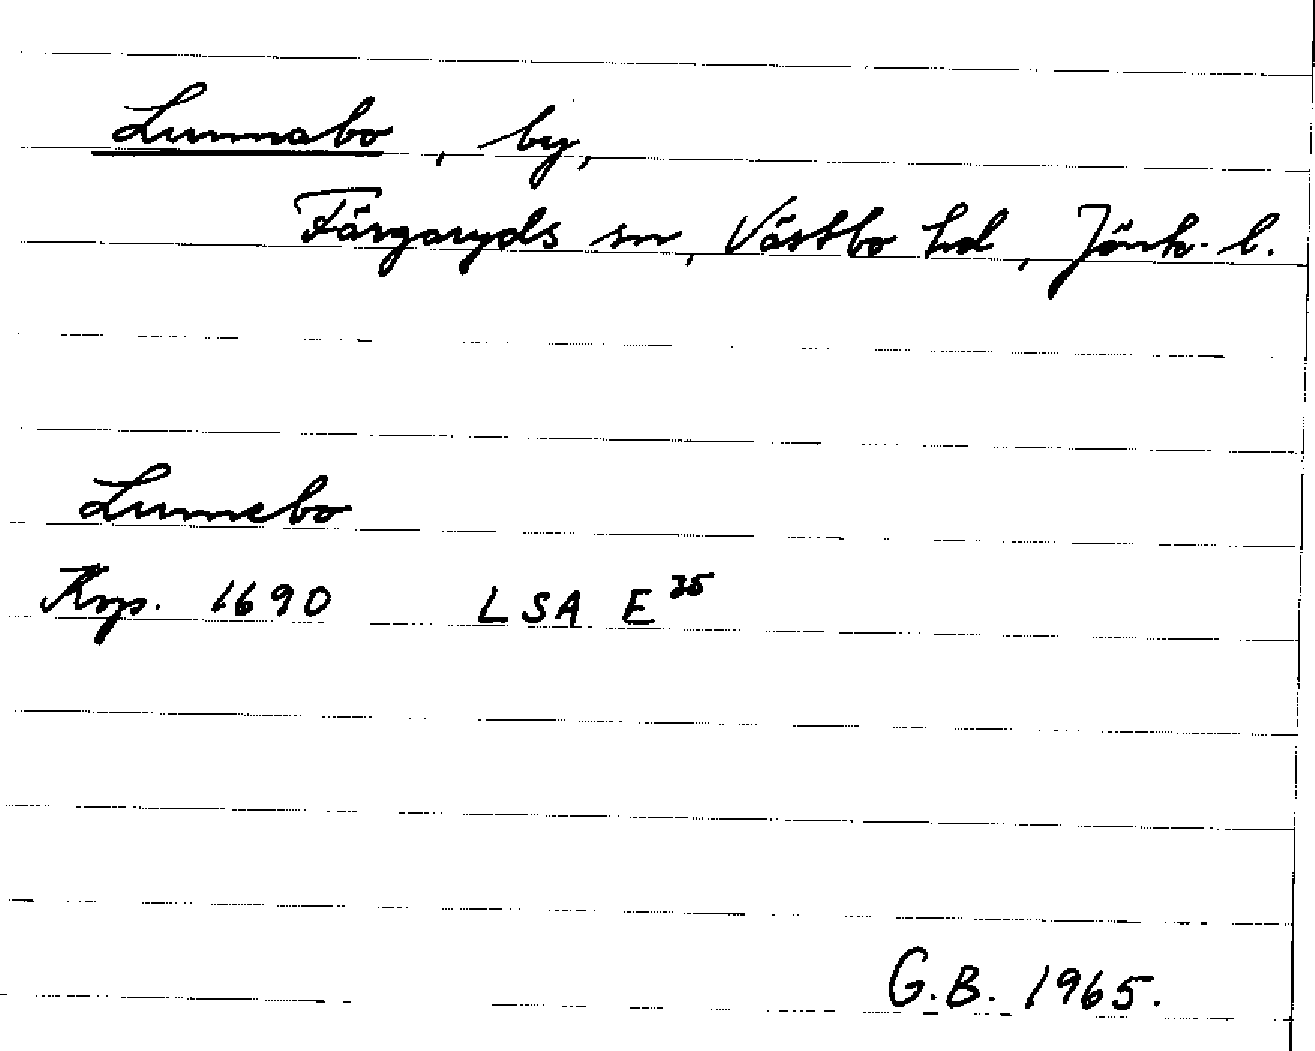 Lunnabo, by,
Färgaryds sn, Västbo hd, Jönk. l.
Lunnebo
Krp. 1690 LSA E 35
G.B. 1965.